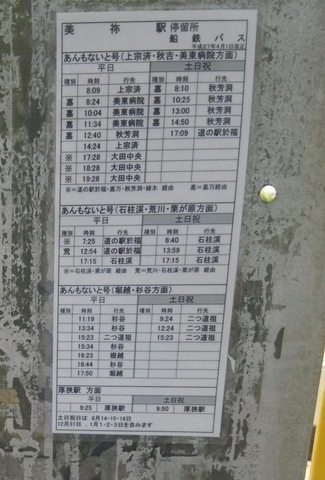 美祢駅停留所
船鉄バス
平成27年4月1日改正
あんもないと号(上宗済・秋吉・美東病院方面)
平日 土日祝
種別 時刻 行先 種別 時刻 行先
8:09 上宗済 嘉 8:10 秋芳洞
嘉 8:24 美東病院 嘉 10:25 秋芳洞
嘉 10:04 美東病院 嘉 13:00 秋芳洞
嘉 11:34 美東病院 嘉 14:50 秋芳洞
嘉 12:40 秋芳洞 17:09 道の駅於福
14:24 上宗済
※ 17:28 大田中央
※ 18:28 大田中央
※ 19:28 大田中央
※=道の駅於福・嘉万・秋芳洞・経由 嘉=嘉万経由
あんもないと号(石柱渓・荒川・栗が原方面)
平日 土日祝
種別 時刻 行先 種別 時刻 行先
※ 7:25 道の駅於福 6:40 石柱渓
荒 12:54 道の駅於福 13:59 石柱渓
17:15 石柱渓 17:15 石柱渓
※=石柱渓が原 経由 荒=荒川・石柱渓・栗が原 経由
あんもないと号(堀越・杉谷方面)
平日 土日祝
種別 時刻 行先 種別 時刻 行先
11:19 杉谷 9:24 二つ道祖
13:34 杉谷 12:24 二つ道祖
15:23 二つ道祖 15:23 二つ道祖
15:34 杉谷
16:23 堀越
16:44 杉谷
17:50 堀越
厚狭駅 方面
平日 土日祝
9:25 厚狭駅 9:50 厚狭駅
土日祝日は 8月14・15・16日
12月31日 、1月1・2・3日を含みます